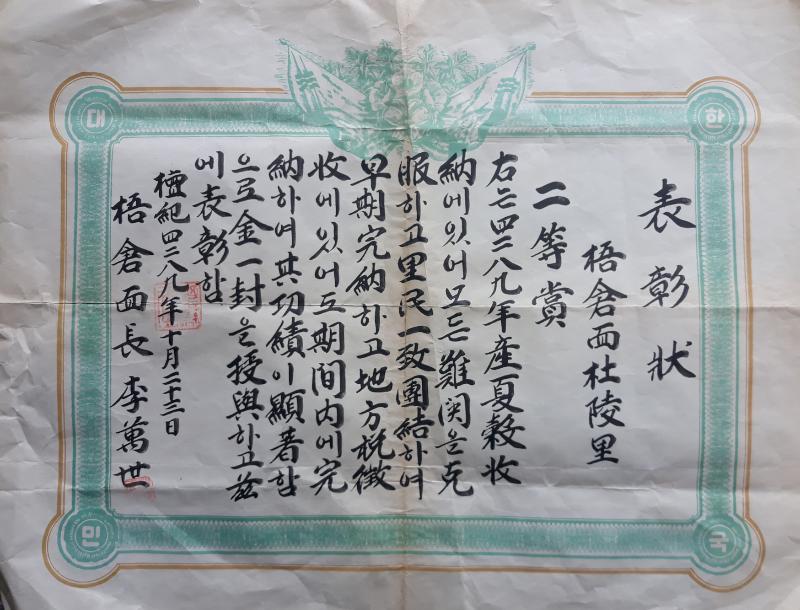 表彰狀
梧倉面杜陵里
二等賞
右는四二八九年産夏穀收
納에있어모든難関을克
服하고里民一致團結하여
早期完納하고地方稅徵
收에있어도期間内에完
納하여其功績이顯著함
으로金一封을授與하고玆
에表彰함
檀紀四二八九年十月二十三日
梧倉面長 李萬世
대
한
민
국